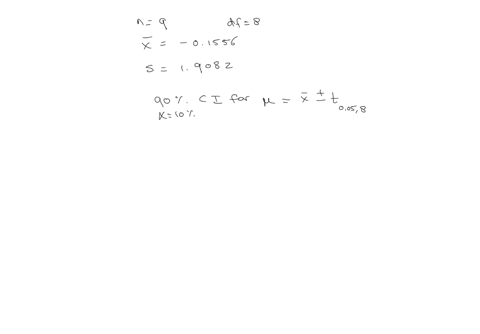 n = 9 df = 8
x̄ = -0.1556
s = 1.9082
90% CI for μ = x̄ ± t0.05,8
α=10%